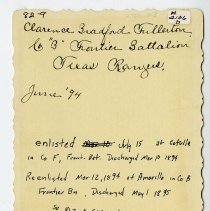 82.9
H
2106
D
Clarence Bradford Fullerton
Co "B" Frontier Battalion
Texas Rangers.
June '94
enlisted July 15 at Cotulla
in Co F, Front. Bat. Discharged Mar 10 1894
Reenlisted Mar 12, 1894 at Amarillo in Co B
Frontier Bn, Discharged May 1 1895